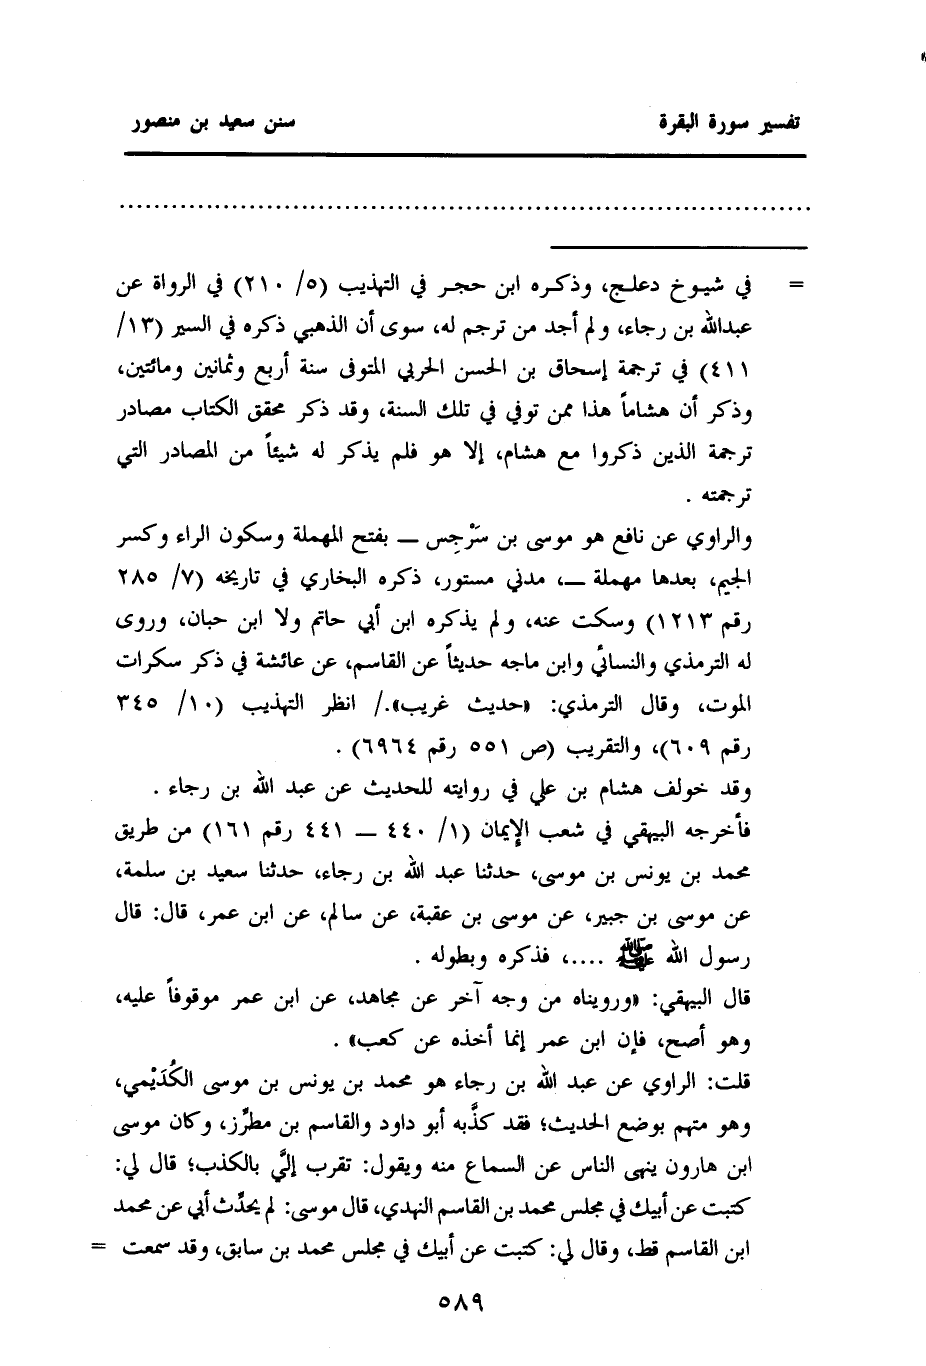 تفسير سورة البقرة سنن سعيد بن منصور
......................................................................
= في شيوخ دعلج، وذكره ابن حجر في التهذيب (٥/ ٢١٠) في الرواة عن
عبدالله بن رجاء، ولم أجد من ترجم له، سوى أن الذهبي ذكره في السير (١٣/
٤١١) في ترجمة إسحاق بن الحسن الحربي المتوفى سنة أربع وثمانين ومائتين،
وذكر أن هشاماً هذا ممن توفي في تلك السنة، وقد ذكر محقق الكتاب مصادر
ترجمة الذين ذكروا مع هشام، إلا هو فلم يذكر له شيئاً من المصادر التي
ترجمته .
والراوي عن نافع هو موسى بن سَرْجِس ــ بفتح المهملة وسكون الراء وكسر
الجيم، بعدها مهملة ــ، مدني مستور، ذكره البخاري في تاريخه (٧/ ٢٨٥
رقم ١٢١٣) وسكت عنه، ولم يذكره ابن أبي حاتم ولا ابن حبان، وروى
له الترمذي والنسائي وابن ماجه حديثاً عن القاسم، عن عائشة في ذكر سكرات
الموت، وقال الترمذي: «حديث غريب»./ انظر التهذيب (١٠/ ٣٤٥
رقم ٦٠٩)، والتقريب (ص ٥٥١ رقم ٦٩٦٤) .
وقد خولف هشام بن علي في روايته للحديث عن عبد الله بن رجاء .
فأخرجه البيهقي في شعب الإيمان (١/ ٤٤٠ ــ ٤٤١ رقم ١٦١) من طريق
محمد بن يونس بن موسى، حدثنا عبد الله بن رجاء، حدثنا سعيد بن سلمة،
عن موسى بن جبير، عن موسى بن عقبة، عن سالم، عن ابن عمر، قال: قال
رسول الله ﷺ ....، فذكره وبطوله .
قال البيهقي: «ورويناه من وجه آخر عن مجاهد، عن ابن عمر موقوفاً عليه،
وهو أصح، فإن ابن عمر إنما أخذه عن كعب» .
قلت: الراوي عن عبد الله بن رجاء هو محمد بن يونس بن موسى الكُدَيْمي،
وهو متهم بوضع الحديث؛ فقد كذَّبه أبو داود والقاسم بن مطرِّز، وكان موسى
ابن هارون ينهى الناس عن السماع منه ويقول: تقرب إليَّ بالكذب؛ قال لي:
كتبت عن أبيك في مجلس محمد بن القاسم النهدي، قال موسى: لم يحدِّث أبي عن محمد
ابن القاسم قط، وقال لي: كتبت عن أبيك في مجلس محمد بن سابق، وقد سمعت =
٥٨٩